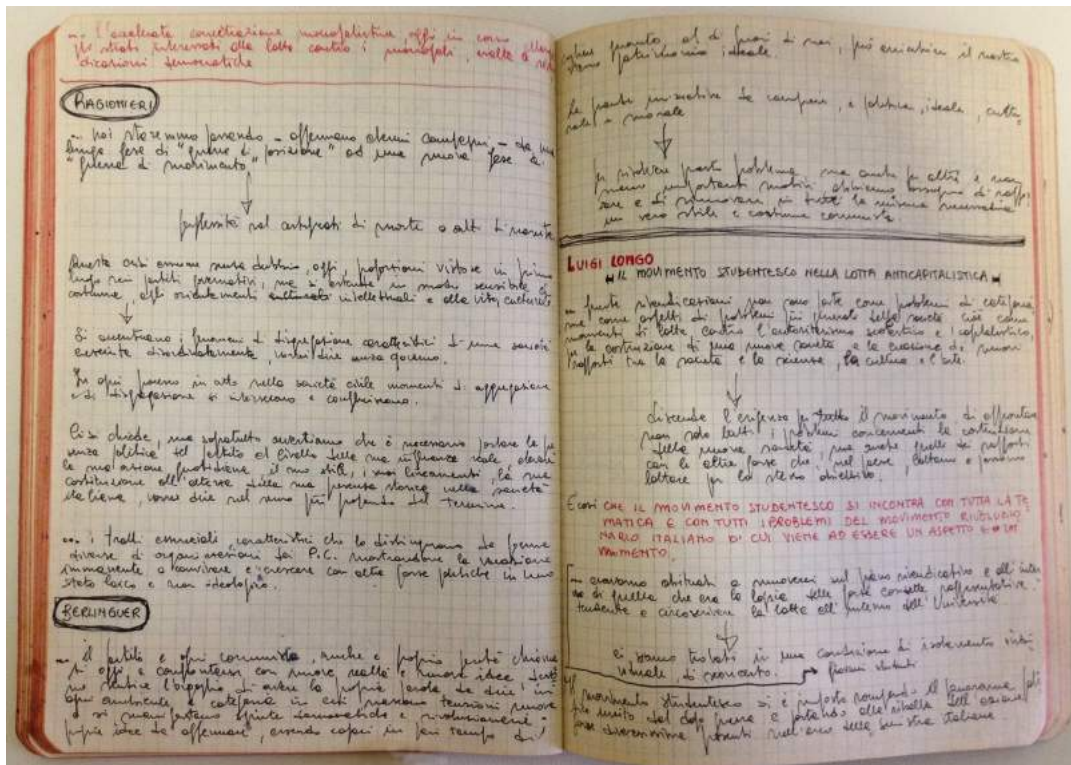 ... l'accelerata concentrazione monopolistica, oggi in corso
gli strati interessati alla lotta contro i monopoli, svolta a
dicazioni democratiche
RAGIONIERI
... noi staremmo passando - affermano alcuni compagni, - da una
lunga fase di "guerra di posizione" ad una nuova fase di
"guerra di movimento"
perplessità sui certificati di morte o atti di nascita
Questa crisi assume senza dubbio, oggi, proporzioni vistose in primo
luogo nei partiti governativi, ma si estende in modo sensibile al
costume, agli orientamenti intellettuali e alla vita culturale
Si accentuano i fenomeni di disgregazione caratteristici di una società
cresciuta disordinatamente, senza governo.
In ogni processo in atto nella società civile momenti di aggregazione
e di disgregazione si intrecciano e confluiscono.
Ci si chiede, ma soprattutto avvertiamo che è necessario portare la pre
senza politica del partito al livello della sua influenza reale,
la sua azione quotidiana, il suo stile, i suoi lineamenti, la sua
costituzione all'altezza della sua presenza storica nella società
italiana, nel senso più profondo del termine.
... i tratti essenziali caratteristici che lo distinguono da forme
diverse di organizzazioni dei P.C. mostrandone la vocazione
immanente a convivere e crescere con altre forze politiche in uno
stato laico e non ideologico.
BERLINGUER
... il partito e ogni comunista, anche e proprio perché chiama
si oggi a confrontarsi con nuove realtà e nuove idee
sentire l'orgoglio di avere la propria parola da dire in
ogni ambiente e categoria in cui nascono tensioni nuove
e si manifestano spinte democratiche e rivoluzionarie
proprie idee da affermare, essendo capaci in pari tempo di
quanto al di fuori di noi, può arricchire il nostro
stesso patrimonio ideale.
Le iniziative da compiere, è politica, ideale, cultu
rale e morale
per risolvere questo problema ma anche per altri e non
meno importanti motivi, abbiamo bisogno di raffor
zare e di rinnovare in tutta la misura necessaria
un vero stile e costume comunista.
LUIGI LONGO
IL MOVIMENTO STUDENTESCO NELLA LOTTA ANTICAPITALISTICA
... queste rivendicazioni non sono poste come problemi di categoria
ma come aspetti di problemi più generali della società cioè come
momenti di lotta, contro l'autoritarismo scolastico e capitalistico,
per la costruzione di una nuova società e la creazione di nuovi
rapporti tra la società e la scienza, la cultura e l'arte.
discende l'esigenza per tutto il movimento di affrontare
non solo tutti i problemi concernenti la costruzione
della nuova società, ma anche quello dei rapporti
con le altre forze che, nel paese, lottano e possono
lottare per lo stesso obiettivo.
E così CHE IL MOVIMENTO STUDENTESCO SI INCONTRA CON TUTTA LA TE
MATICA E CON TUTTI I PROBLEMI DEL MOVIMENTO RIVOLUZIO
NARIO ITALIANO DI CUI VIENE AD ESSERE UN ASPETTO E UN
MOMENTO.
... eravamo abituati a muoverci sul piano rivendicativo e all'inter
no di quella che era la logica delle forze rappresentative
tendente a circoscrivere la lotta all'interno dell'Università
ci siamo trovati in una condizione di isolamento
di sconcerto. giovani studenti
movimento studentesco si è imposto rompendo il panorama poli
tico uscito dal dopo guerra e portando alla ribalta dell'
forze diversissime presenti nell'arco della sinistra italiana